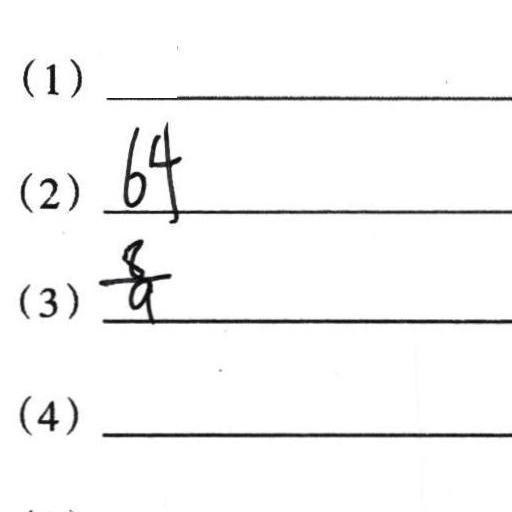 (1)
(2) 64
(3) 8/9
(4)